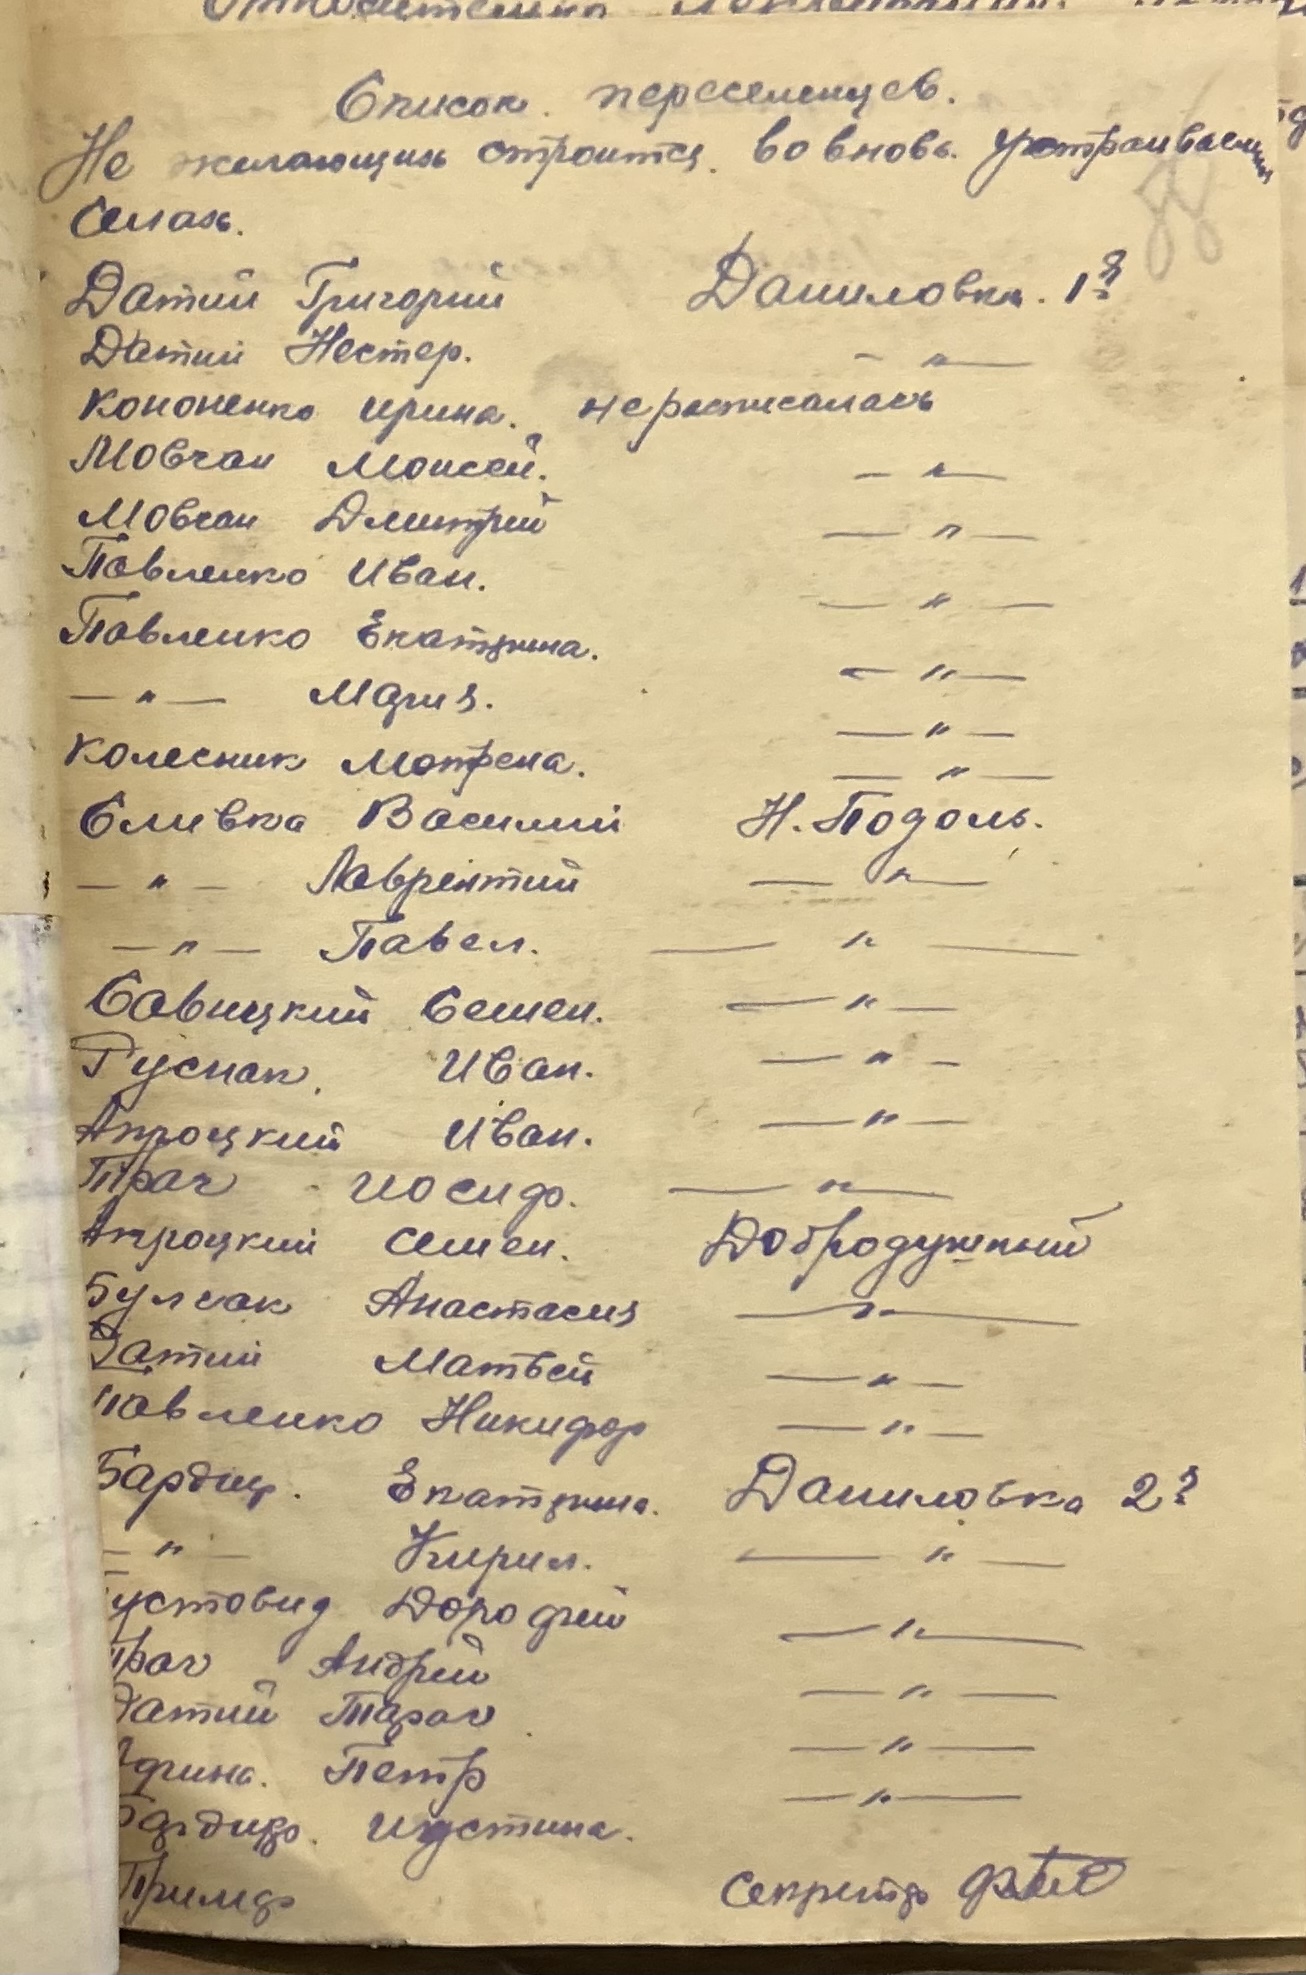 Список переселенцев.
Не желающих строится во вновь устраиваемых
селах.
Датий Григорий Даниловка. 1я
Датий Нестер. — " —
Кононенко Ирина. не росписалась
Мовчан Моисей. — " —
Мовчан Дмитрий — " —
Павленко Иван. — " —
Павленко Екатерина. — " —
— " — Мария. — " —
Колесник Мотрена. — " —
Сливка Василий Н. Подоль.
— " — Лаврентий — " —
— " — Павел. — " —
Савицкий Семен. — " —
Руснак. Иван. — " —
Апроцкий Иван. — " —
Ткрач Иосиф. — " —
Апроцкий Семен. Добродушный
Булгак Анастасия — " —
Датий Матвей — " —
Павленко Никифор — " —
Бардиер. Екатерина. Даниловка 2я
— " — Кирил. — " —
устовид Дорофей — " —
Андрей — " —
Датий Тарас — " —
Петр — " —
Иустина.
Примарь Секретарь